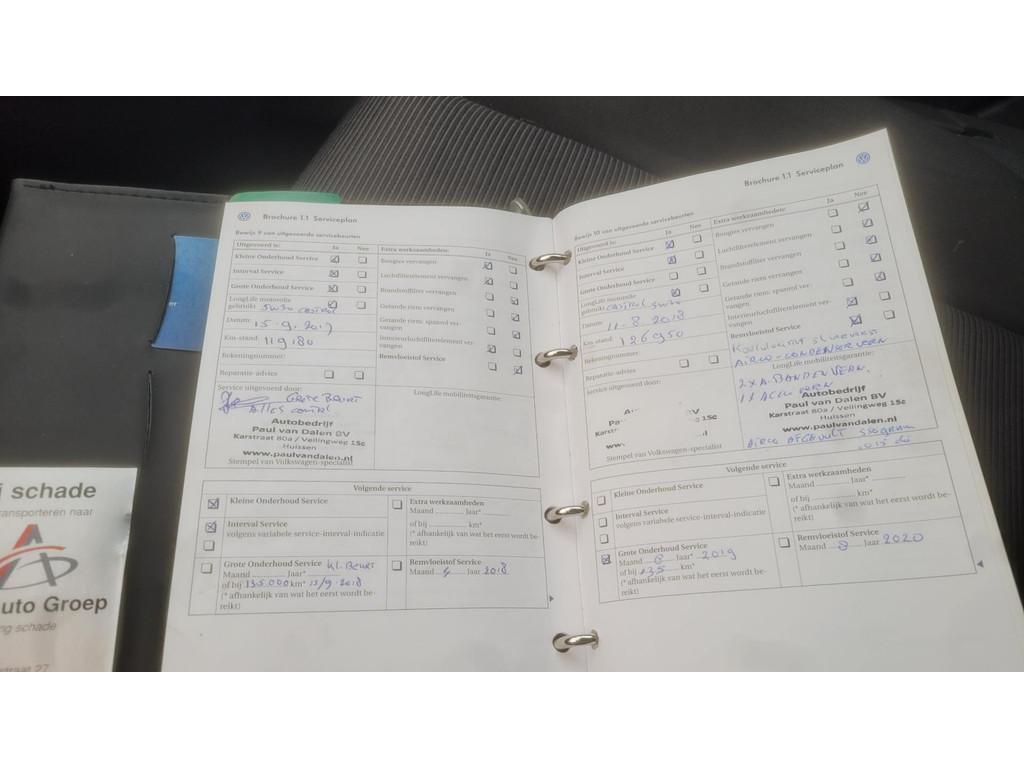 Brochure 1.1 Serviceplan
Bewijs 9 van uitgevoerde servicebeurten
Uitgevoerd is: Ja Nee
Kleine Onderhoud Service
Interval Service
Grote Onderhoud Service
LongLife motorolie
gebruikt: 5W30 CASTROL
Datum: 15-9-2017
Km-stand: 119180
Rekeningnummer:
Reparatie-advies
Service uitgevoerd door:
GROTE BEURT
ALLES
Autobedrijf
Paul van Dalen BV
Karstraat 80a / Veilingweg 15c
Huissen
www.paulvandalen.nl
Stempel van Volkswagen-specialist
Extra werkzaamheden: Ja Nee
Bougies vervangen
Luchtfilterelement vervangen
Brandstoffilter vervangen
Getande riem vervangen
Getande riem: spanrol ver-
vangen
Interieurluchtfilterelement ver-
vangen
Remvloeistof Service
LongLife mobiliteitsgarantie:
Volgende service
Kleine Onderhoud Service
Interval Service
volgens variabele service-interval-indicatie
Grote Onderhoud Service KL. Beurt
Maand Jaar*
of bij 135.000 km* 15/9-2018
(* afhankelijk van wat het eerst wordt be-
reikt)
Extra werkzaamheden
Maand Jaar*
of bij km*
(* afhankelijk van wat het eerst wordt be-
reikt)
Remvloeistof Service
Maand Jaar 2018
Brochure 1.1 Serviceplan
Bewijs 10 van uitgevoerde servicebeurten
Uitgevoerd is: Ja Nee
Kleine Onderhoud Service
Interval Service
Grote Onderhoud Service
LongLife motorolie
gebruikt: CASTROL 5W30
Datum: 11-8 2018
Km-stand: 126950
Rekeningnummer:
Reparatie-advies
Service uitgevoerd door:
BV
Karstr 15c
www.
Stempel van Volkswagen-specialist
Extra werkzaamheden: Ja Nee
Bougies vervangen
Luchtfilterelement vervangen
Brandstoffilter vervangen
Getande riem vervangen
Getande riem: spanrol ver-
vangen
Interieurluchtfilterelement ver-
vangen
Remvloeistof Service
AIRCO-CONDENSER VERN
LongLife mobiliteitsgarantie:
2x A. BANDEN VERN.
1x ACCU VERN
Autobedrijf
Paul van Dalen BV
Karstraat 80a / Veilingweg 15c
Huissen
www.paulvandalen.nl
AIRCO AFGEVULT 550GRAM
Volgende service
Kleine Onderhoud Service
Interval Service
volgens variabele service-interval-indicatie
Grote Onderhoud Service
Maand 8 Jaar* 2019
of bij 235 km*
(* afhankelijk van wat het eerst wordt be-
reikt)
Extra werkzaamheden
Maand Jaar*
of bij km*
(* afhankelijk van wat het eerst wordt be-
reikt)
Remvloeistof Service
Maand 8 Jaar 2020
j schade
ransporteren naar
uto Groep
ng schade
straat 27